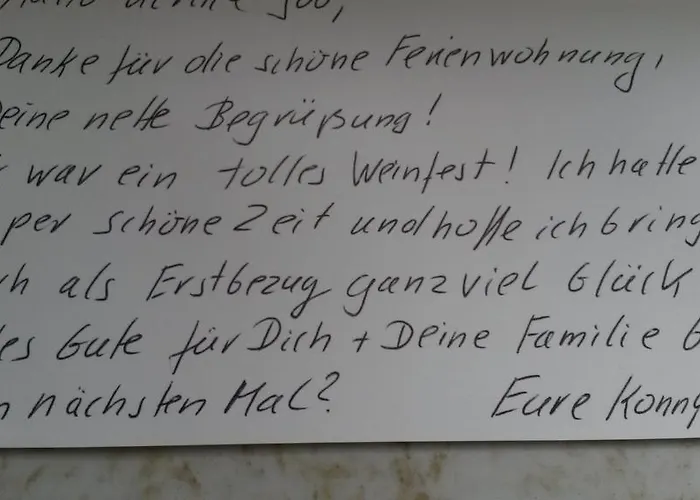 Danke für die schöne Ferienwohnung,
Deine nette Begrüßung!
war ein tolles Weinfest! Ich hatte
per schöne Zeit und hoffe ich bring
ch als Erstbezug ganz viel Glück
es Gute für Dich + Deine Familie
n nächsten Mal?
Eure Konny